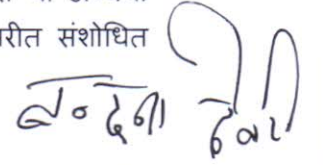 रीत संशोधित
वन्दना देवी